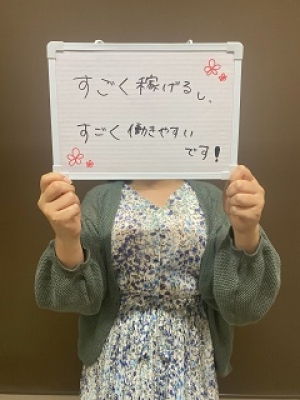 すごく稼げるし、
すごく働きやすい
です!